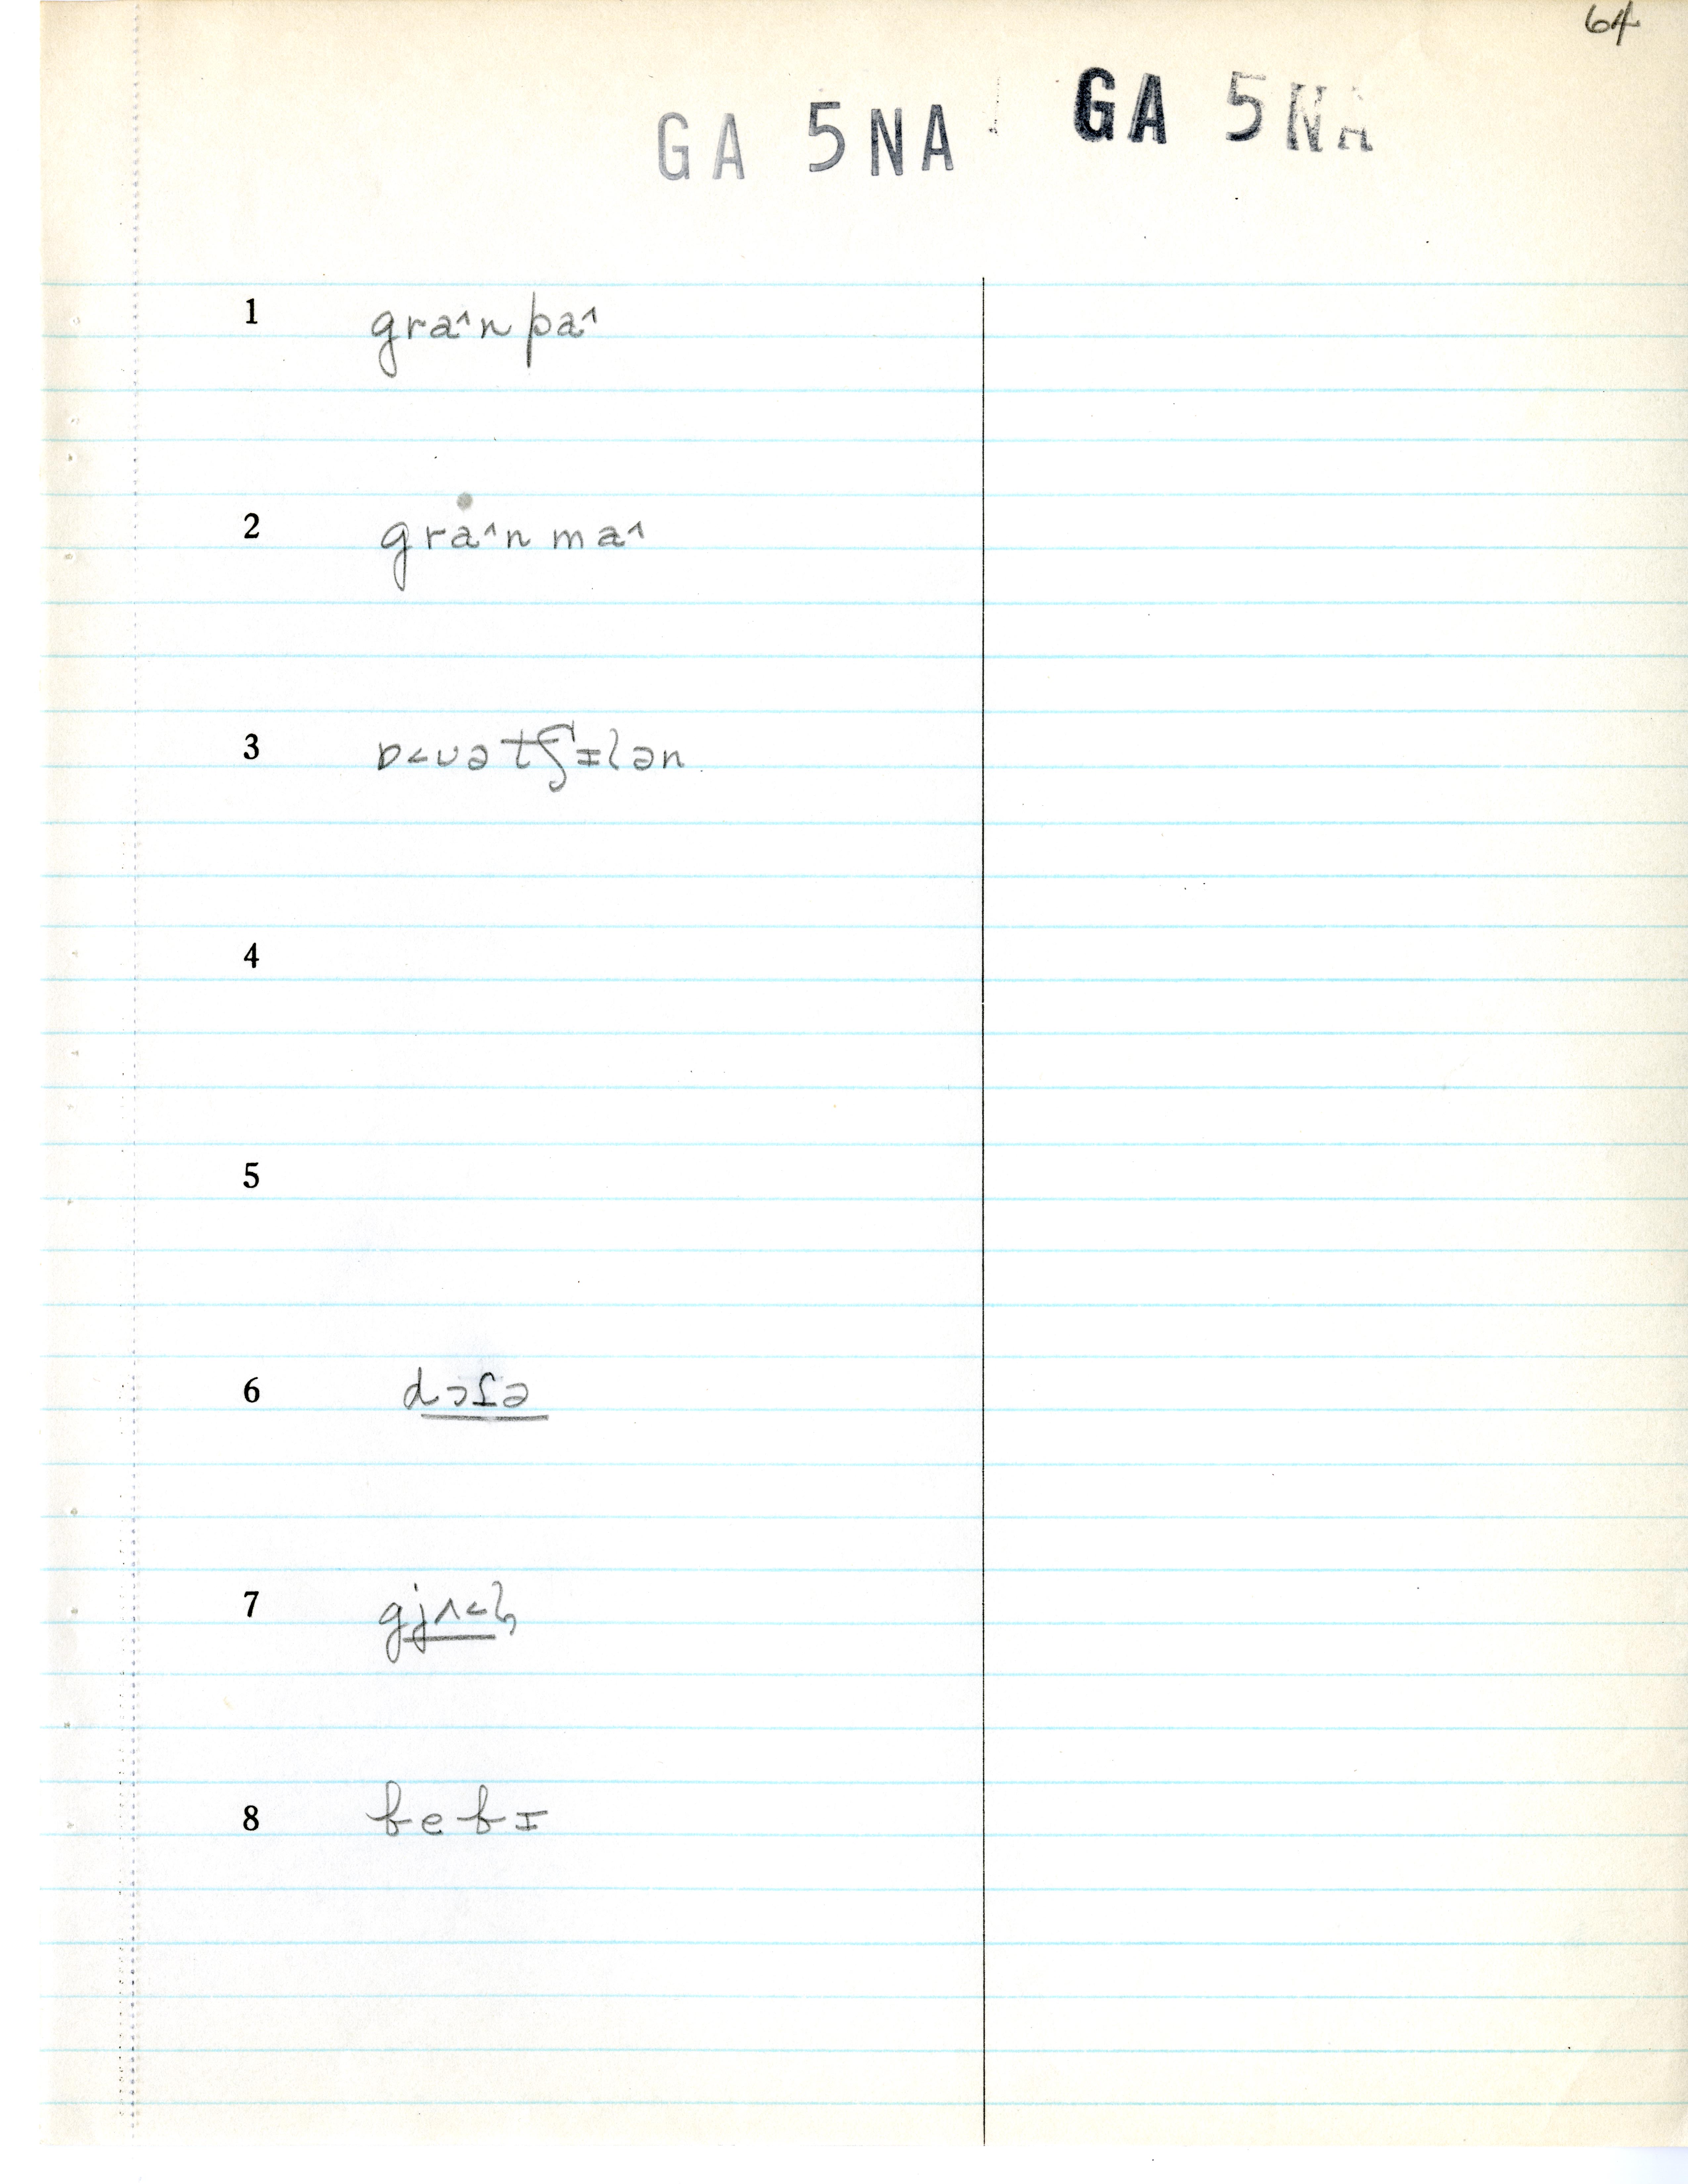 64
GA 5NA GA 5NA
1 graˆn paˆ
2 graˆn maˆ
3 ɒ<ʊə tʃɪlən
4
5
6 dɔɾə
7 gjʌ<l̩
8 bebɪ